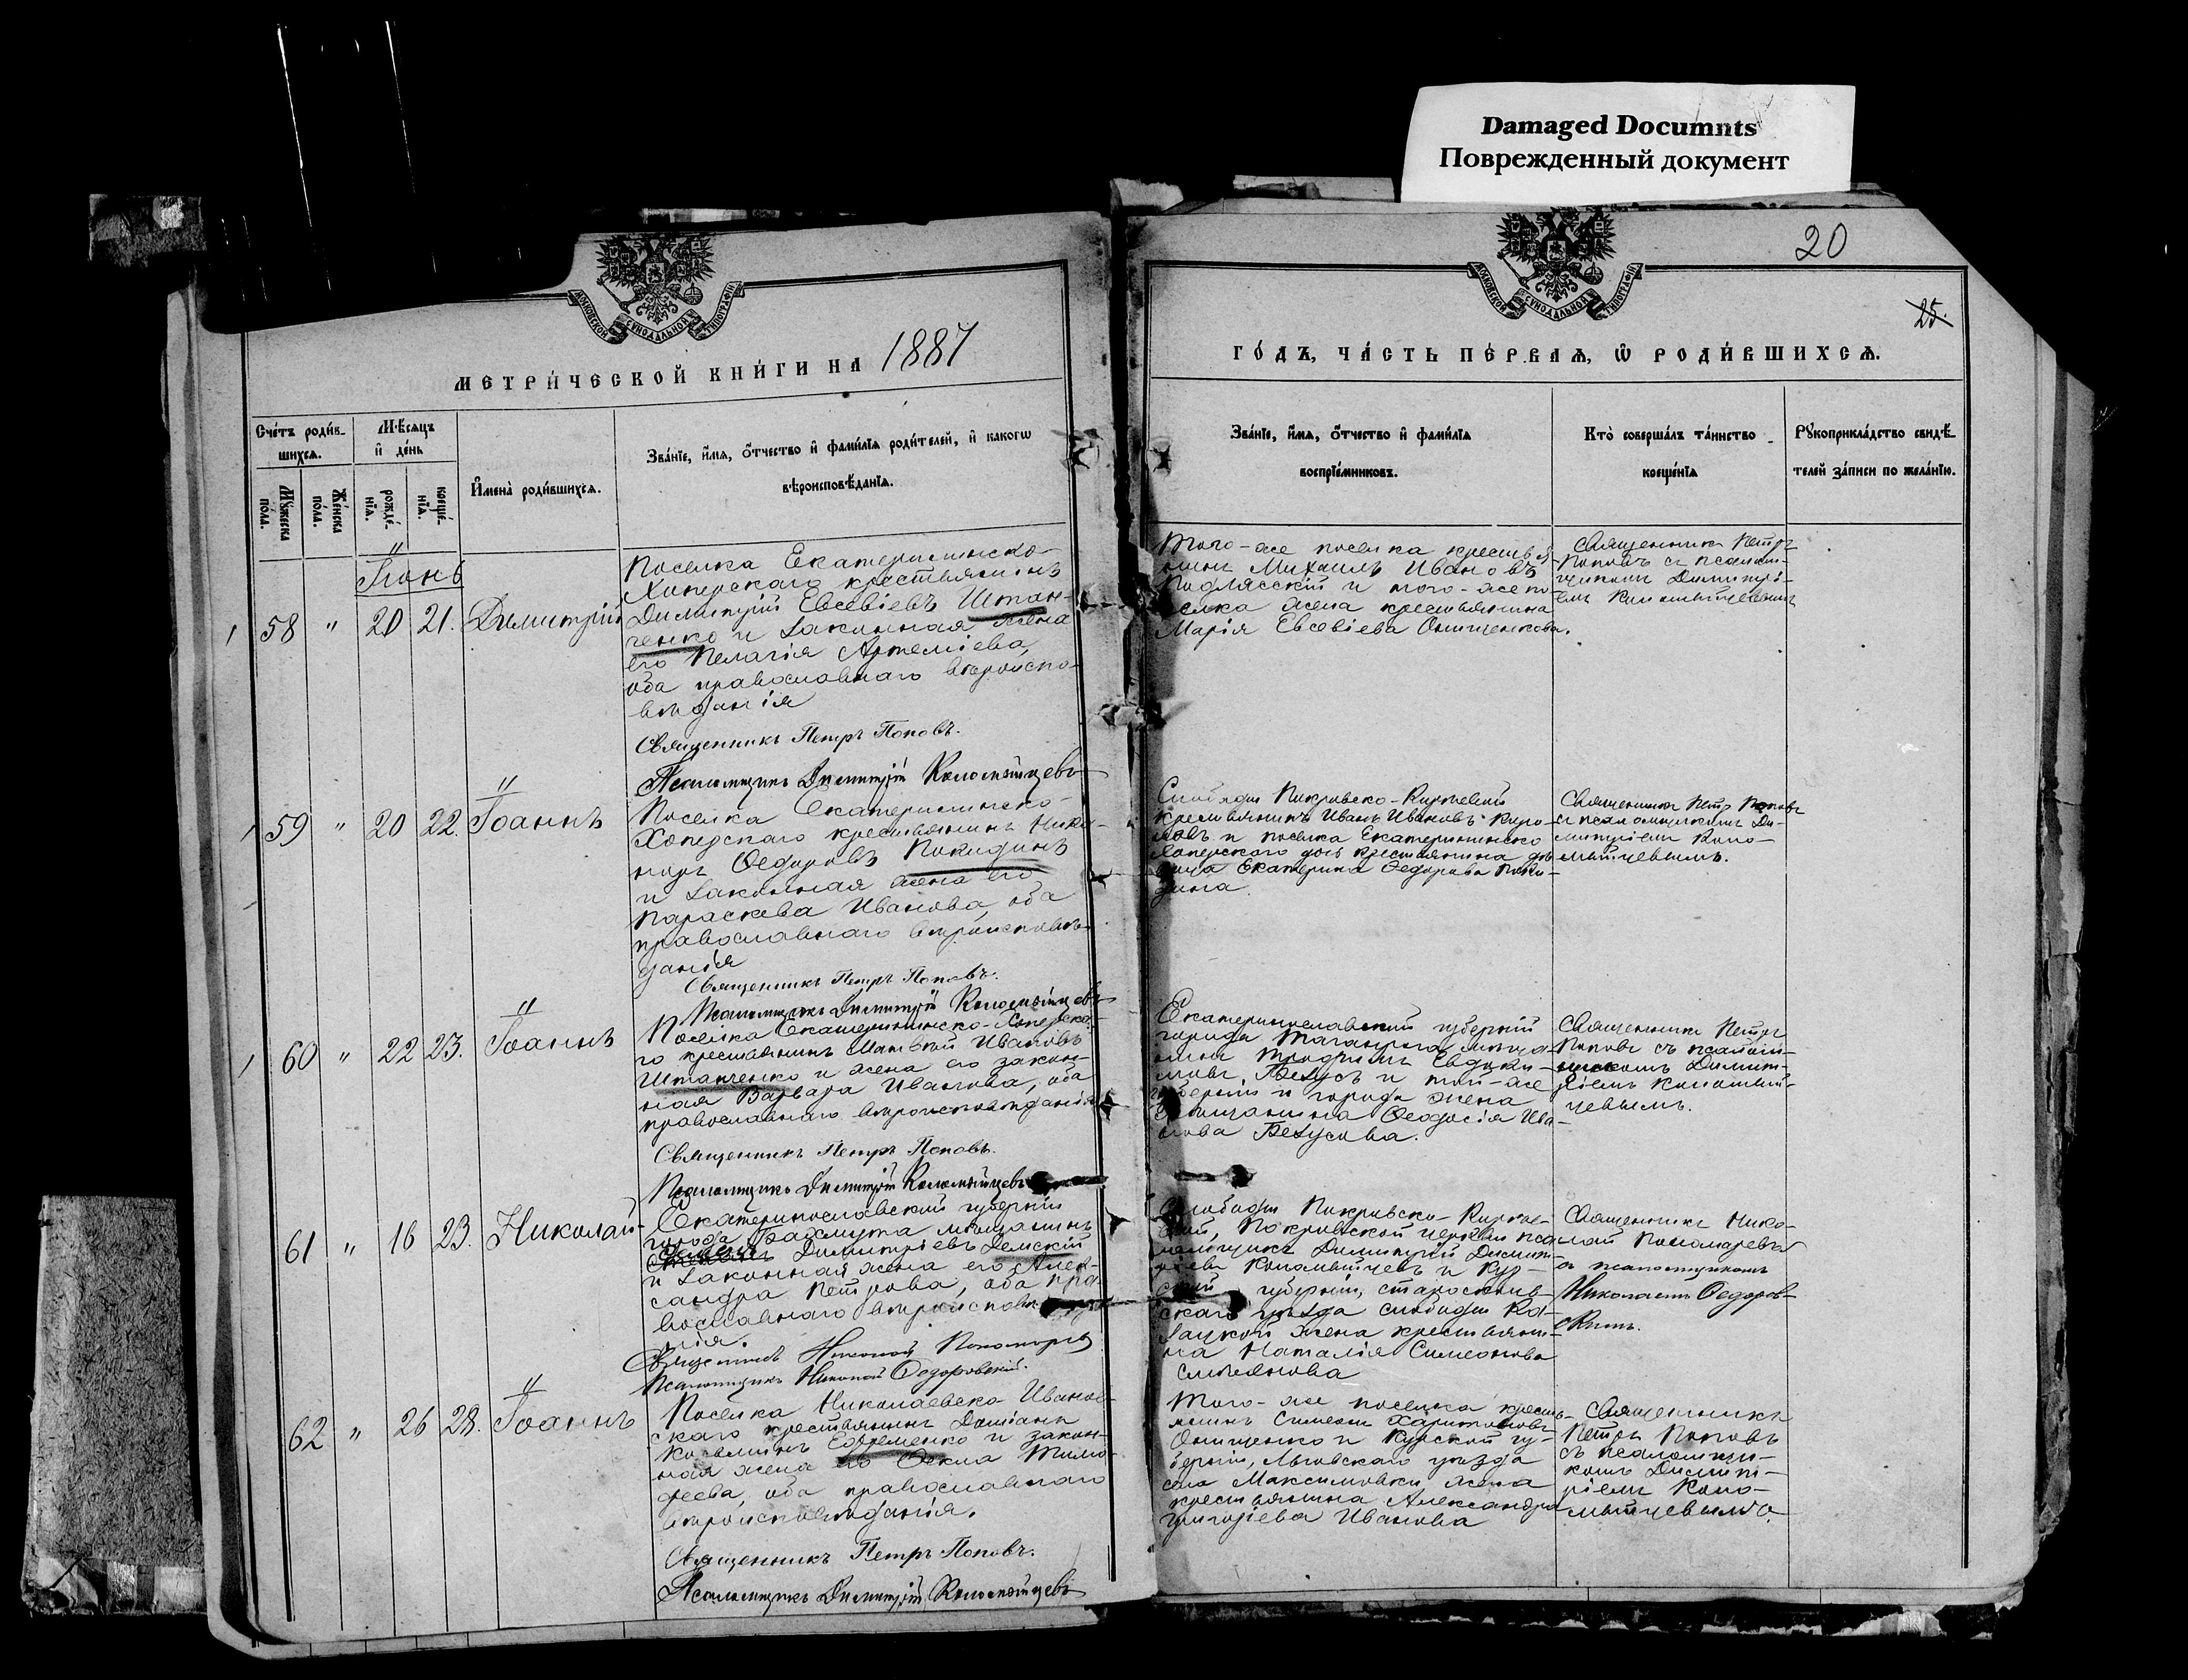 Damaged Documnts
Поврежденный документ
20
25.
МОСКОВСКОЙ СѴНОДАЛЬНОЙ ТИПОГРАФІИ
МОСКОВСКОЙ СѴНОДАЛЬНОЙ ТИПОГРАФІИ
МЕТРИ́ЧЕСКОЙ КНИ́ГИ НА 1887
ГО́ДЪ, ЧА́СТЬ ПЕ́РВАѦ, Ѿ РОДИ́ВШИХСѦ.
Сче́тъ роди́вшихсѧ.
Мꙋ́жеска по́ла.
Же́нска по́ла.
Мѣ́сѧцъ и҆ де́нь
рожде́нїѧ.
креще́нїѧ.
И҆мена̀ роди́вшихсѧ.
Зва́нїе, и҆́мѧ, ѻ҆́тчество и҆ фами́лїѧ роди́телей, и҆ како́гѡ
вѣроисповѣ́данїѧ.
Зва́нїе, и҆́мѧ, ѻ҆́тчество и҆ фами́лїѧ
воспрїе́мниковъ.
Кто̀ соверша́лъ та́инство
креще́нїѧ
Рꙋкоприкла́дство свидѣ́-
телей за́писи по жела́нїю.
"
Іюнь
58 " 20 21. Димитрій
Поселка Екатерининско-
Хоперскаго крестьянинъ
Димитрій Евсевіевъ Штан-
ченко и законная жена
его Пелагія Артеміева,
оба православнаго вѣроиспо-
вѣданія
Священникъ Петръ Поповъ.
Псаломщикъ Димитрій Коломыйцевъ
Того-же поселка крестья-
нинъ Михаилъ Ивановъ
Подлясскій и того-же по-
селка жена крестьянина
Марія Евсевіева Онищенкова.
Священникъ Петръ
Поповъ съ псалом-
щикомъ Димитрі-
емъ Коломыйцевымъ
"
59 " 20 22. Іоаннъ
Поселка Екатерининско-
Хоперскаго крестьянинъ Ники-
норъ Ѳедоровъ Покидинъ
и законная жена его
Параскева Иванова, оба
православнаго вѣроисповѣ-
данія
Священникъ Петръ Поповъ.
Псаломщикъ Димитрій Коломыйцевъ
Слободы Покровско-Киреевки
крестьянинъ Иванъ Ивановъ
и поселка Екатерининско
Хоперскаго дочь крестьянина дѣ-
вица Екатерина Ѳедорова Поки-
дина
Священникъ Петръ Поповъ
съ псаломщикомъ Ди-
митріемъ Коло-
мыйцевымъ.
"
60 " 22 23. Іоаннъ
Поселка Екатерининско-Хоперска-
го крестьянинъ Матвѣй Ивановъ
Штанченко и жена его закон-
ная Варвара Иванова, оба
православнаго вѣроисповѣданія
Священникъ Петръ Поповъ.
Псаломщикъ Димитрій Коломыйцевъ
Екатеринославской губерніи
города Таганрога мѣща-
нинъ Трофимъ Евдоки-
мовъ Безусъ и той-же
губерніи и города жена
мѣщанина Ѳеодосія Ива-
нова Безусова.
Священникъ Петръ
Поповъ съ псалом-
щикомъ Димит-
ріемъ Коломый-
цевымъ.
61 " 16 23. Николай
Екатеринославской губерніи
города Бахмута мѣщанинъ
Димитріевъ Демскій
и законная жена его Алек-
сандра Петрова, оба пра-
вославнаго вѣроисповѣда-
нія.
Священникъ Николай Пономаревъ
Псаломщикъ Николай Ѳедоровскій.
Слободы Покровско-Кирее-
вой, Покровской церкви пса-
ломщикъ Димитрій Димит-
ріевъ Коломыйцевъ и Кур-
ской губерніи, Старооскол-
скаго уѣзда слободы Ка-
зацкой жена крестьяни-
на Наталія Симеонова
Священникъ Нико-
лай Пономаревъ
съ псаломщикомъ
Николаемъ Ѳедоров-
скимъ.
"
62 " 26 28. Іоаннъ
Поселка Николаевско Иванов-
скаго крестьянинъ Даміанъ
Козьминъ Ефременко и закон-
ная жена его Ѳекла Тимо-
феева, оба православнаго
вѣроисповѣданія.
Священникъ Петръ Поповъ.
Псаломщикъ Димитрій Коломыйцевъ
Того-же поселка кресть-
янинъ Симеонъ Харитоновъ
Онищенко и Курской гу-
берніи, Льговскаго уѣзда
села Максимовки жена
крестьянина Александра
Григоріева Иванова
Священникъ
Петръ Поповъ
съ псаломщи-
комъ Димит-
ріемъ Коло-
мыйцевымъ.